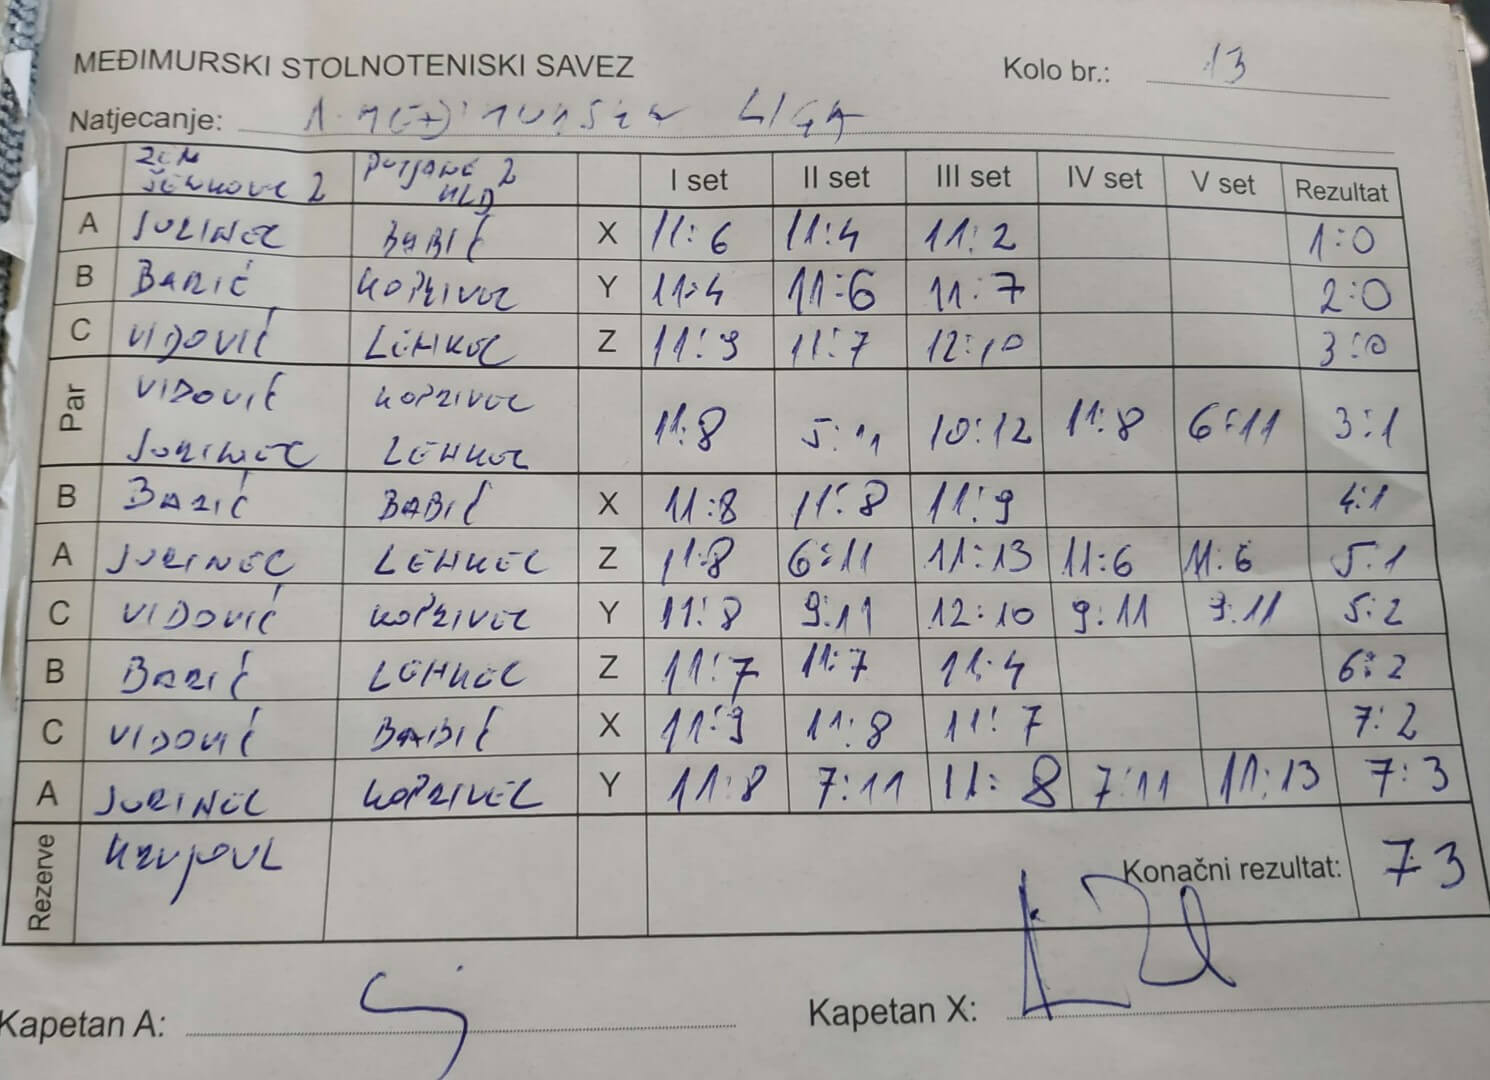 MEĐIMURSKI STOLNOTENISKI SAVEZ Kolo br.: 13
Natjecanje: 1. MEĐIMURSKA LIGA
ŽELM
ŠENKOVEC 2 PUTJANE 2 MLD I set II set III set IV set V set Rezultat
A JURINEC BABIĆ X 11:6 11:4 11:2 1:0
B BARIĆ KOPRIVEC Y 11:4 11:6 11:7 2:0
C VIDOVIĆ LEHKEC Z 11:9 11:7 12:10 3:0
Par VIDOVIĆ KOPRIVEC
JURINEC LEHKEC 11:8 5:11 10:12 11:8 6:11 3:1
B BARIĆ BABIĆ X 11:8 11:8 11:9 4:1
A JURINEC LEHKEC Z 11:8 6:11 11:13 11:6 11:6 5:1
C VIDOVIĆ KOPRIVEC Y 11:8 9:11 12:10 9:11 9:11 5:2
B BARIĆ LEHKEC Z 11:7 11:7 11:4 6:2
C VIDOVIĆ BABIĆ X 11:9 11:8 11:7 7:2
A JURINEC KOPRIVEC Y 11:8 7:11 11:8 7:11 11:13 7:3
Rezerve
Konačni rezultat: 7:3
Kapetan A: Kapetan X: